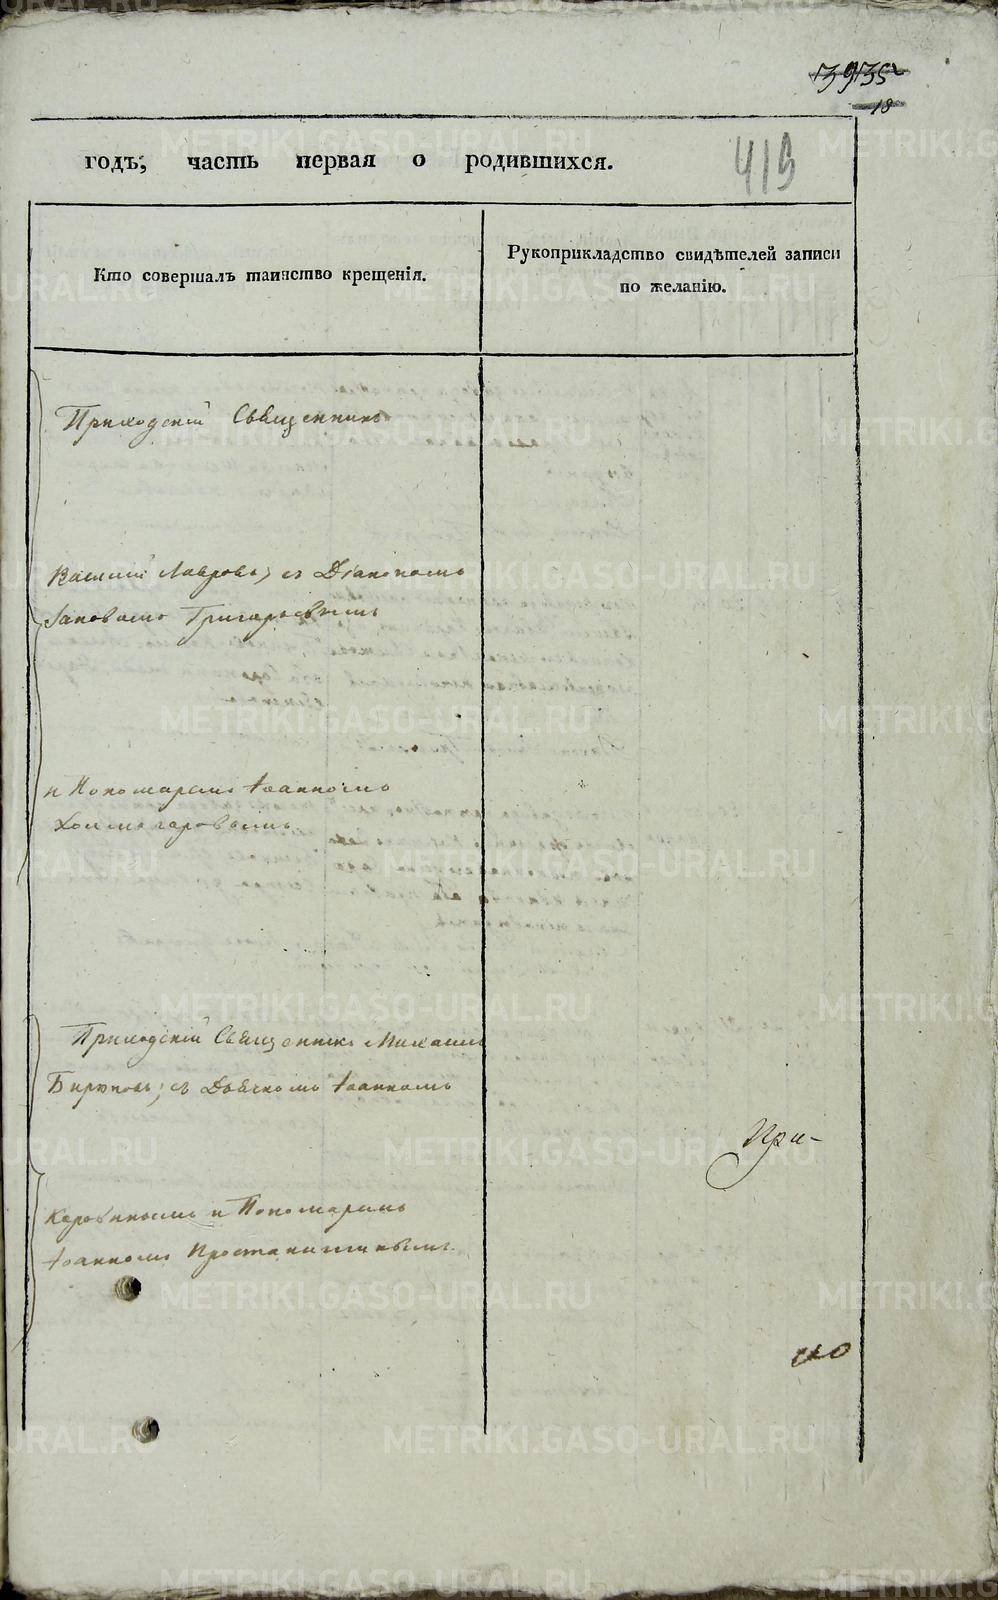 18
годъ, часть первая о родившихся.
419
Кто совершалъ таинство крещенія.
Рукоприкладство свидѣтелей записи
по желанію.
Приходскій Священникъ
Василій Лавровъ, съ Діакономъ
Іаковомъ Григорьевымъ
и Пономаремъ Іоанномъ
Холмогоровымъ
Приходскій Священникъ Михаилъ
Бирюковъ, съ Дьячкомъ Іоанномъ
и Пономаремъ
Іоанномъ
При-
METRIKI.GASO-URAL.RU